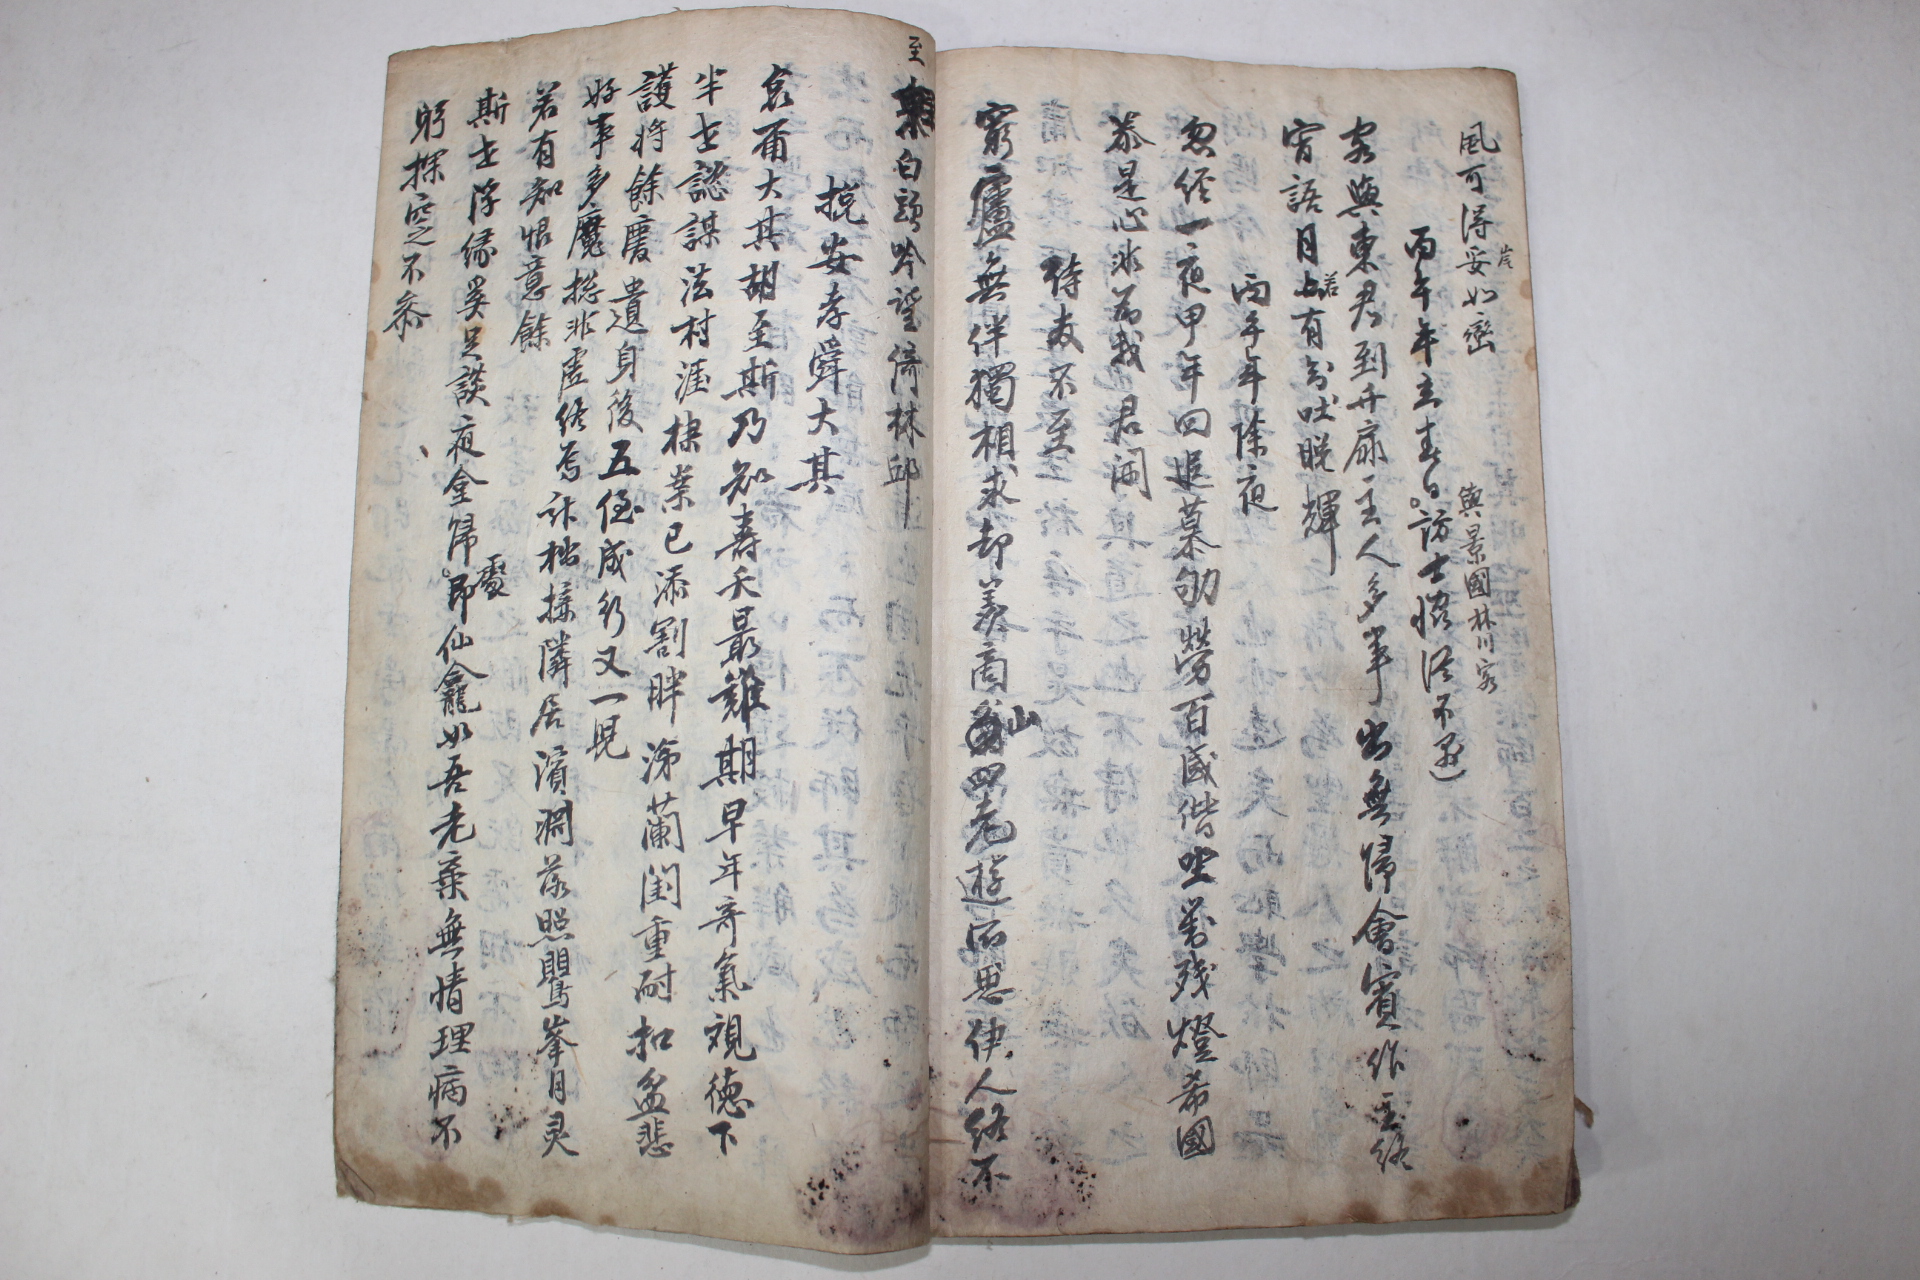 風可得妥如巒
岸
丙午年立春日訪士 不遇
與景國林川客
客與東君到弁扉主人多事出無歸會賓作主終
宵語月 有 吐晚輝
丙午年除夜
忽經一夜甲年回追慕劬勞百感偕坐對殘燈希國
恭是心非為我君開
待友不至
窮廬無伴獨相求却羨商山四老遊所思伊人終不
至
白頭吟望倚林邱
挽安孝舜大其
哀爾大其胡至斯乃知壽夭最難期早年奇氣親德下
半世認謀法村涯棣業已添割胖涕蘭閨重耐扣盆悲
護將餘慶遺身後五侄成行又一兒
好事多魔摠非虛終焉計拙接隣居濱洞落照鷖峯月灵
若有知恨意餘
斯世浮緣奚足談夜金歸 即仙龕如吾老棄無情理病不
處
躬探 之不參